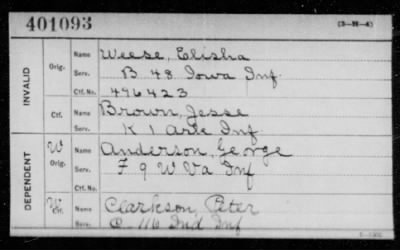 401093
(3-M-4)
INVALID
Orig.
Name Weese, Elisha
Serv. B 48 Iowa Inf.
Ctf. No. 496423
Ctf.
Name Brown, Jesse
Serv. K 1 Ark Inf.
DEPENDENT
W
Orig.
Name Anderson, George
Serv. F 9 W Va Inf
Ctf. No.
W
Ctf.
Name Clarkson, Peter
Serv. C 116 Ind Inf